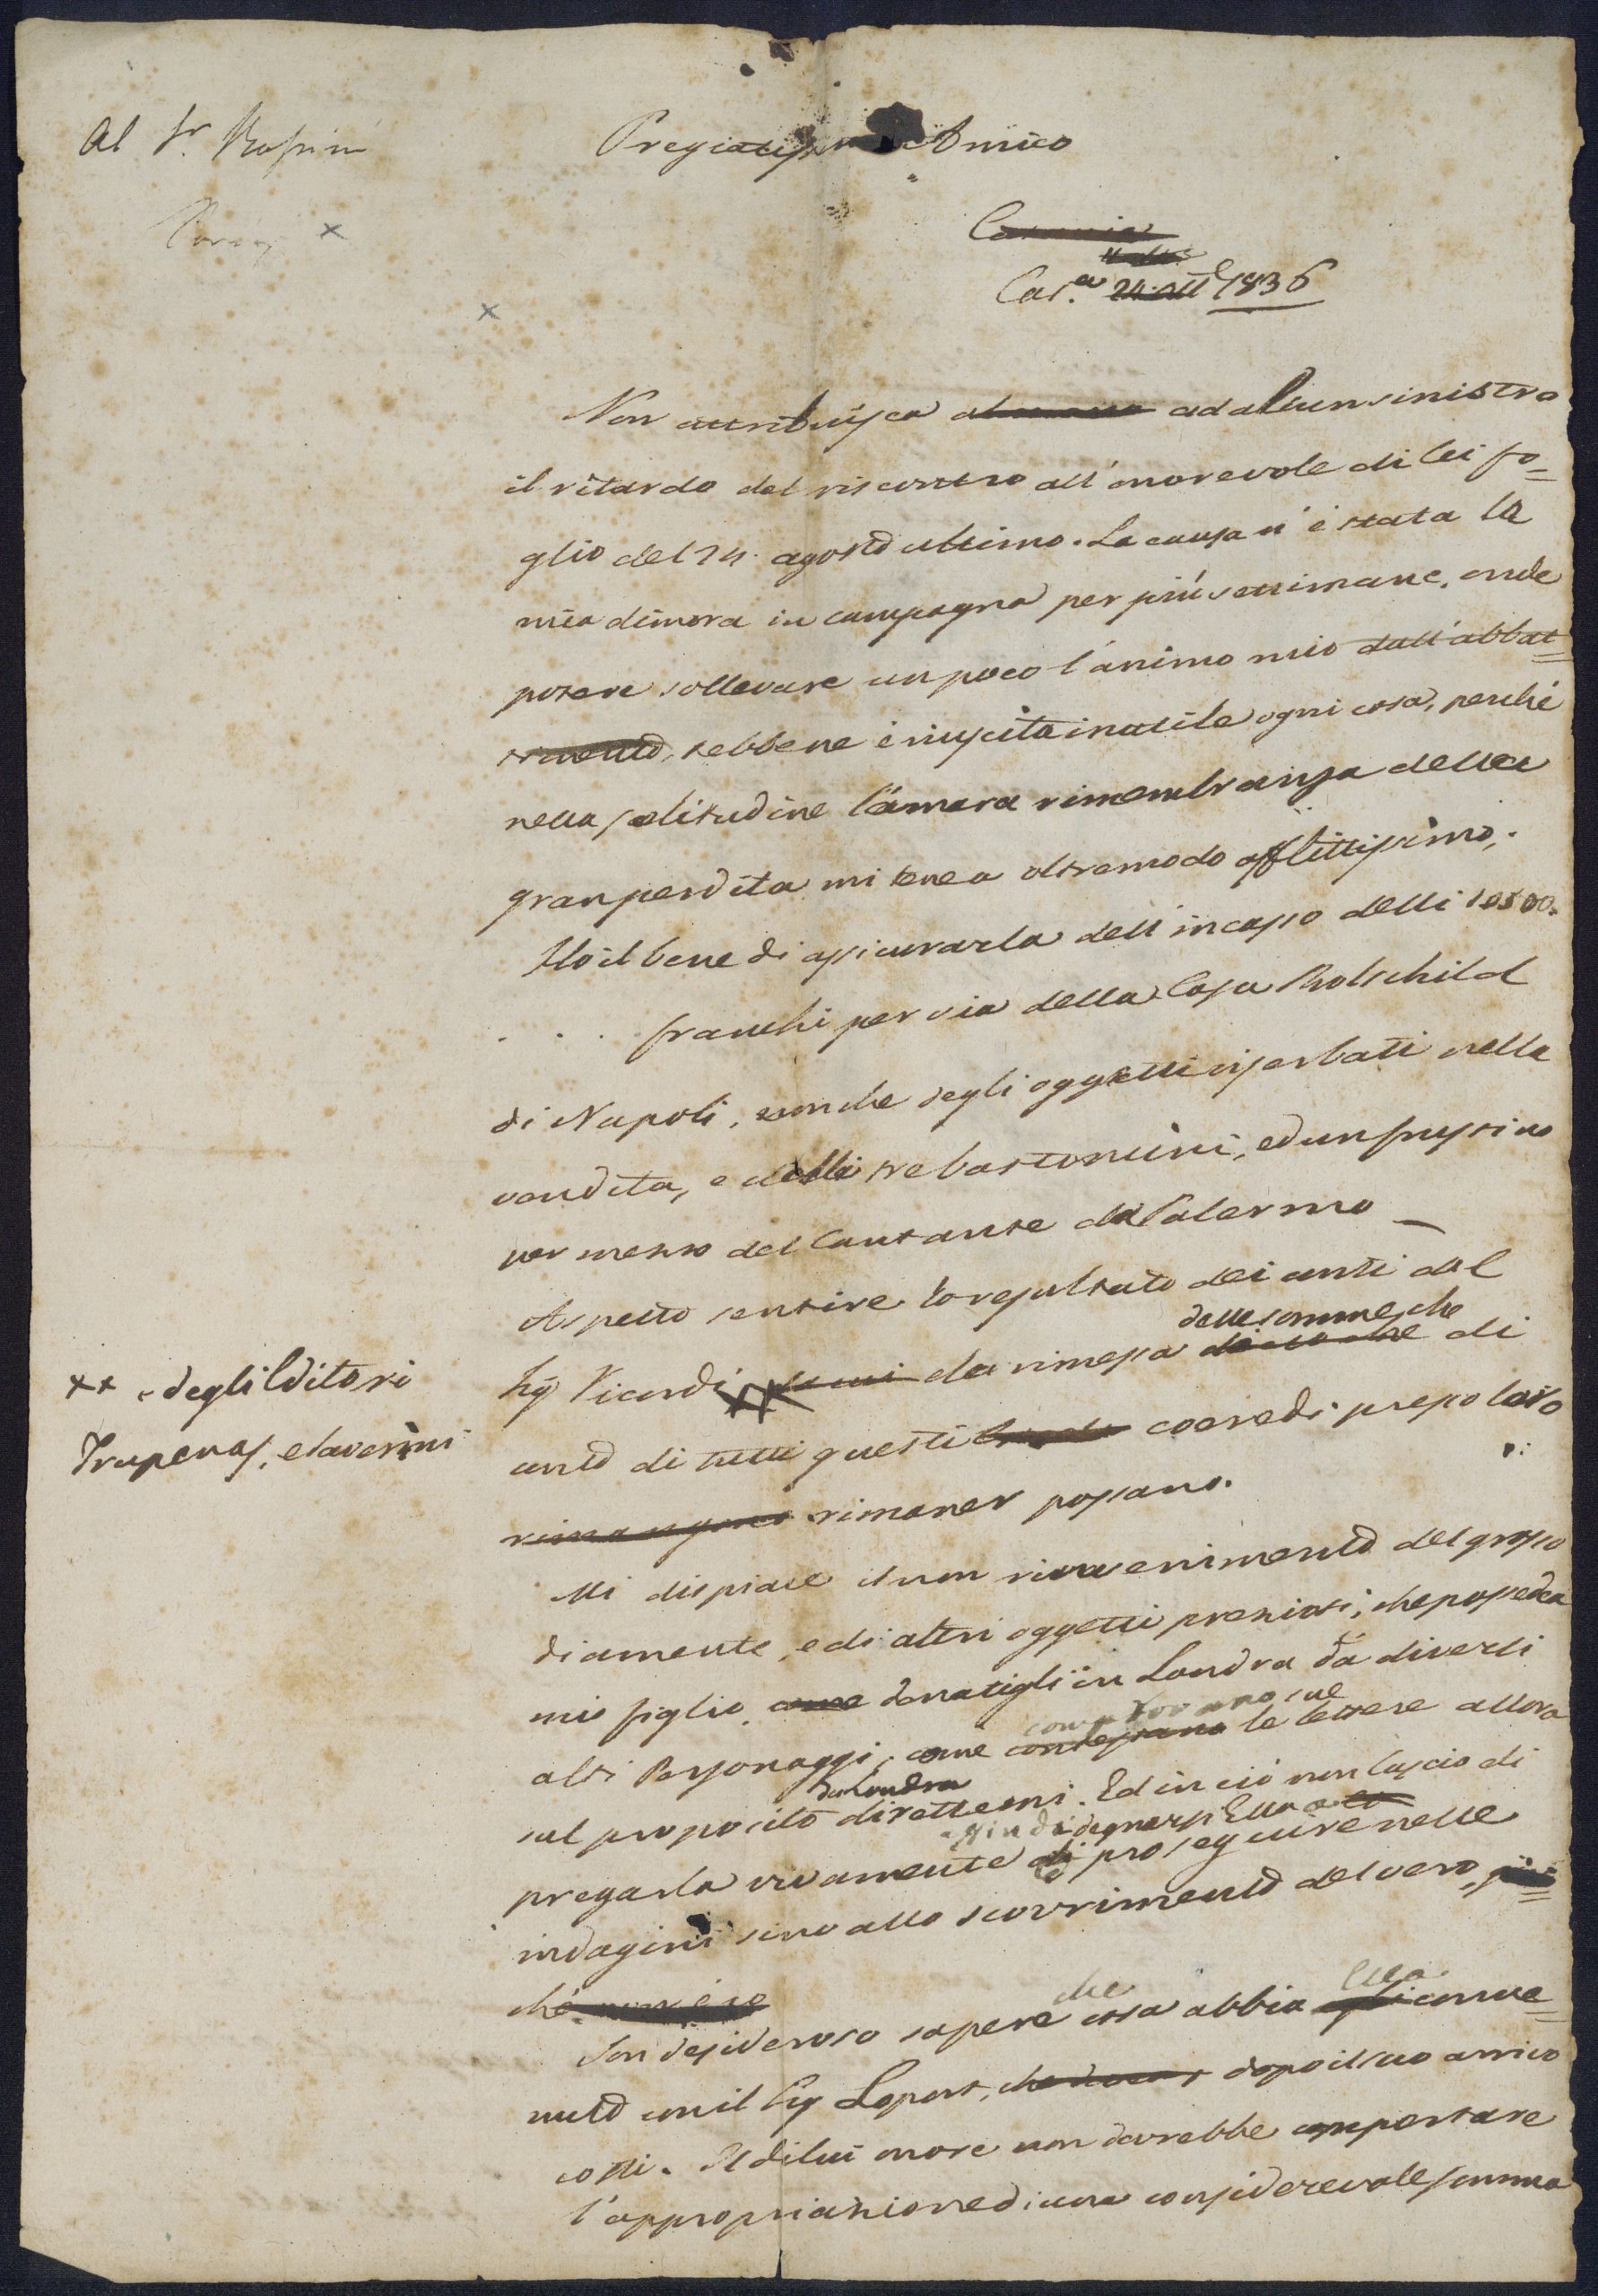 Al Sr. Rossini
Parigi ×
Pregiatissimo Amico
×
Cat.a 24. ott.e 1836
Non attribuisca ad alcun sinistro
il ritardo del riscontro all'onorevole di lei fo=
glio del 24. agosto ultimo. La causa n'è stata la
mia dimora in campagna per più settimane, onde
potere sollevare un poco l'animo mio dall'abbat=
timento, sebbene è riuscita inutile ogni cosa, perché
nella solitudine l'amara rimembranza della
gran perdita mi tenea oltremodo afflittissimo.
Ho il bene di assicurarla dell'incasso delli 10500.
. . . franchi per via della Casa Rotschild
di Napoli, anche degli oggetti riserbati nella
vendita, e delli tre bastoncini, ed un frustino
per mezzo del Cantante da Palermo —
Aspetto sentire lo resultato dei conti del
delle somme, che
Sig Ricordi ×× da rimessa di ciò che di
×× e degli Editori
Trupenas, e Laverini
unito di tutti questi coeredi presso loro
rimangono rimaner possano.
Mi dispiace il non rinvenimento del grosso
diamante, e di altri oggetti preziosi, che possedea
mio figlio, come donatigli in Londra da diversi
alti Personaggi, come contestano le lettere allora
sue
da Londra
sul proposito direttemi. Ed in ciò non lascio di
degnarsi Ella
pregarla vivamente di proseguire nelle
indagini sino allo scovrimento del vero, più=
ché non è so
che Ella
Son desideroso sapere cosa abbia conve=
nuto con il Sig Lopert, dopo il suo arrivo
costì. Il di lui onore non dovrebbe comportare
l'appropriazione di una considerevole somma